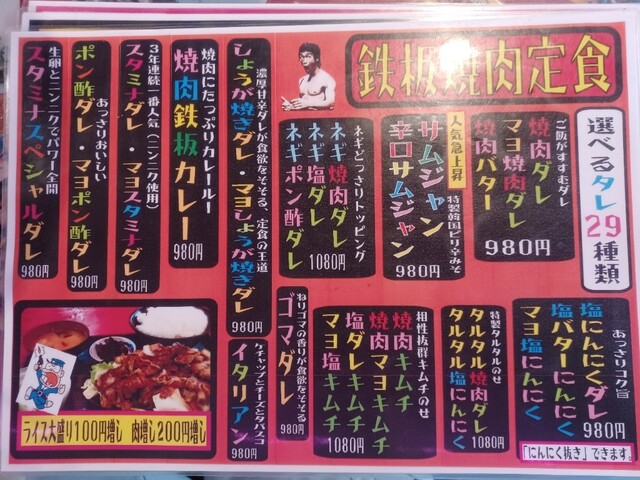 鉄板焼肉定食
選べるタレ29種類
ご飯がすすむダレ
焼肉ダレ
マヨ焼肉ダレ
焼肉バター
980円
人気急上昇
特製韓国ピリ辛みそ
サムジャン
辛口サムジャン
980円
ネギどっさりトッピング
ネギ焼肉ダレ
ネギ塩ダレ
ネギポン酢ダレ
1080円
濃厚甘辛ダレが食欲をそそる、定食の王道
しょうが焼きダレ・マヨしょうが焼きダレ
980円
焼肉にたっぷりカレールー
焼肉鉄板カレー
980円
3年連続一番人気(ニンニク使用)
スタミナダレ・マヨスタミナダレ
980円
あっさりおいしい
ポン酢ダレ・マヨポン酢ダレ
980円
生卵とニンニクでパワー全開
スタミナスペシャルダレ
980円
あっさりコク旨
塩にんにくダレ
塩バターにんにく
マヨ塩にんにく
980円
「にんにく抜き」できます。
特製タルタルのせ
タルタル焼肉ダレ
タルタル塩にんにく
1080円
相性抜群キムチのせ
焼肉キムチ
焼肉マヨキムチ
塩ダレキムチ
マヨ塩キムチ
1080円
ねりゴマの香りが食欲をそそる
ゴマダレ
980円
ケチャップとチーズとタバスコ
イタリアン
980円
ライス大盛り100円増し 肉増し200円増し